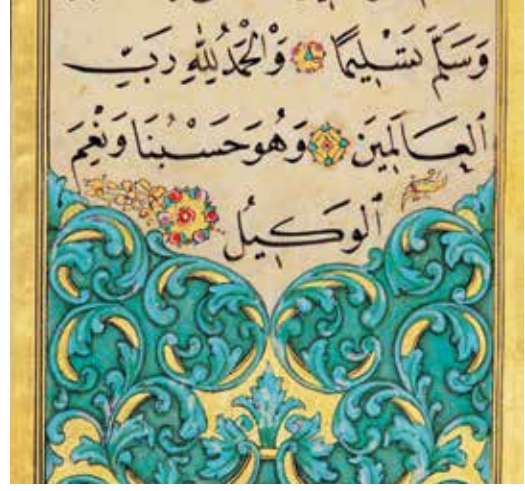 وَسَلَّمَ تَسْلِيمًا وَالْحَمْدُ لِلّٰهِ رَبِّ
الْعَالَمِينَ وَهُوَ حَسْبُنَا وَنِعْمَ
الْوَكِيلُ